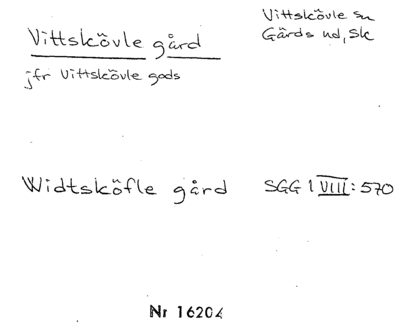 Vittskövle gård
Vittskövle sn
Gärds hd, Sk
jfr Vittskövle gods
Widtsköfle gård
SGG 1 VIII: 570
Nr 16204